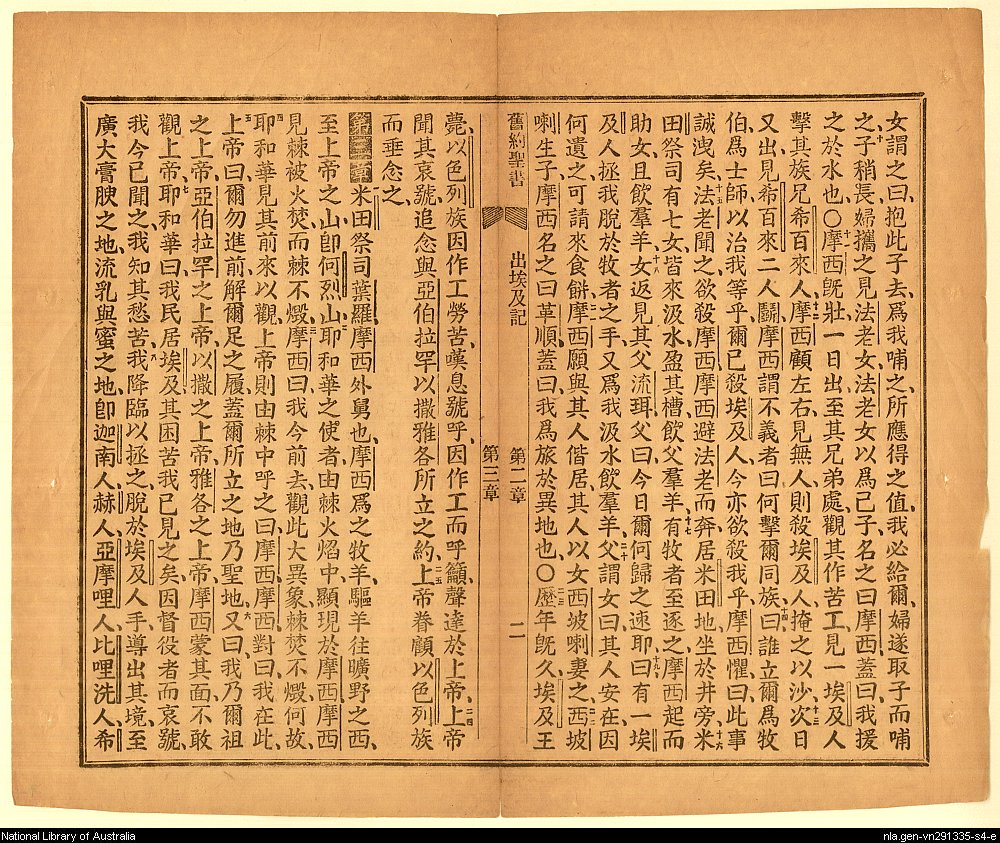 女謂之曰抱此子去爲我哺之所應得之值我必給爾婦遂取子而哺
之十子稍長婦攜之見法老女法老女以爲己子名之曰摩西蓋曰我援
之於水也〇十一摩西旣壯一日出至其兄弟處觀其作苦工見一埃及人
擊其族兄希百來人十二摩西顧左右見無人則殺埃及人掩之以沙十三次日
又出見希百來二人鬭摩西謂不義者曰何擊爾同族十四曰誰立爾爲牧
伯爲士師以治我等乎爾已殺埃及人今亦欲殺我乎摩西懼曰此事
誠洩矣十五法老聞之欲殺摩西摩西避法老而奔居米田地坐於井旁十六米
田祭司有七女皆來汲水盈其槽飲父羣羊十七有牧者至逐之摩西起而
助女且飲羣羊十八女返見其父流珥父曰今日爾何歸之速耶十九曰有一埃
及人拯我脫於牧者之手又爲我汲水飲羣羊二十父謂女曰其人安在因
何遺之可請來食餅二一摩西願與其人偕居其人以女西坡喇妻之二二西坡
喇生子摩西名之曰革順蓋曰我爲旅於異地也〇二三歷年旣久埃及王
舊約聖書 出埃及記 第二章 第三章 二
薨以色列族因作工勞苦嘆息號呼因作工而呼籲聲達於上帝二四上帝
聞其哀號追念與亞伯拉罕以撒雅各所立之約二五上帝眷顧以色列族
而垂念之
第三章米田祭司葉羅摩西外舅也摩西爲之牧羊驅羊往曠野之西
至上帝之山卽何烈山二耶和華之使者由棘火焰中顯現於摩西摩西
見棘被火焚而棘不燬三摩西曰我今前去觀此大異象棘焚不燬何故
四耶和華見其前來以觀上帝則由棘中呼之曰摩西摩西對曰我在此
五上帝曰爾勿進前解爾足之履蓋爾所立之地乃聖地六又曰我乃爾祖
之上帝亞伯拉罕之上帝以撒之上帝雅各之上帝摩西蒙其面不敢
觀上帝七耶和華曰我民居埃及其困苦我已見之矣因督役者而哀號
我今已聞之我知其愁苦八我降臨以拯之脫於埃及人手導出其境至
廣大膏腴之地流乳與蜜之地卽迦南人赫人亞摩哩人比哩洗人希
National Library of Australia
nla.gen-vn291335-s4-e